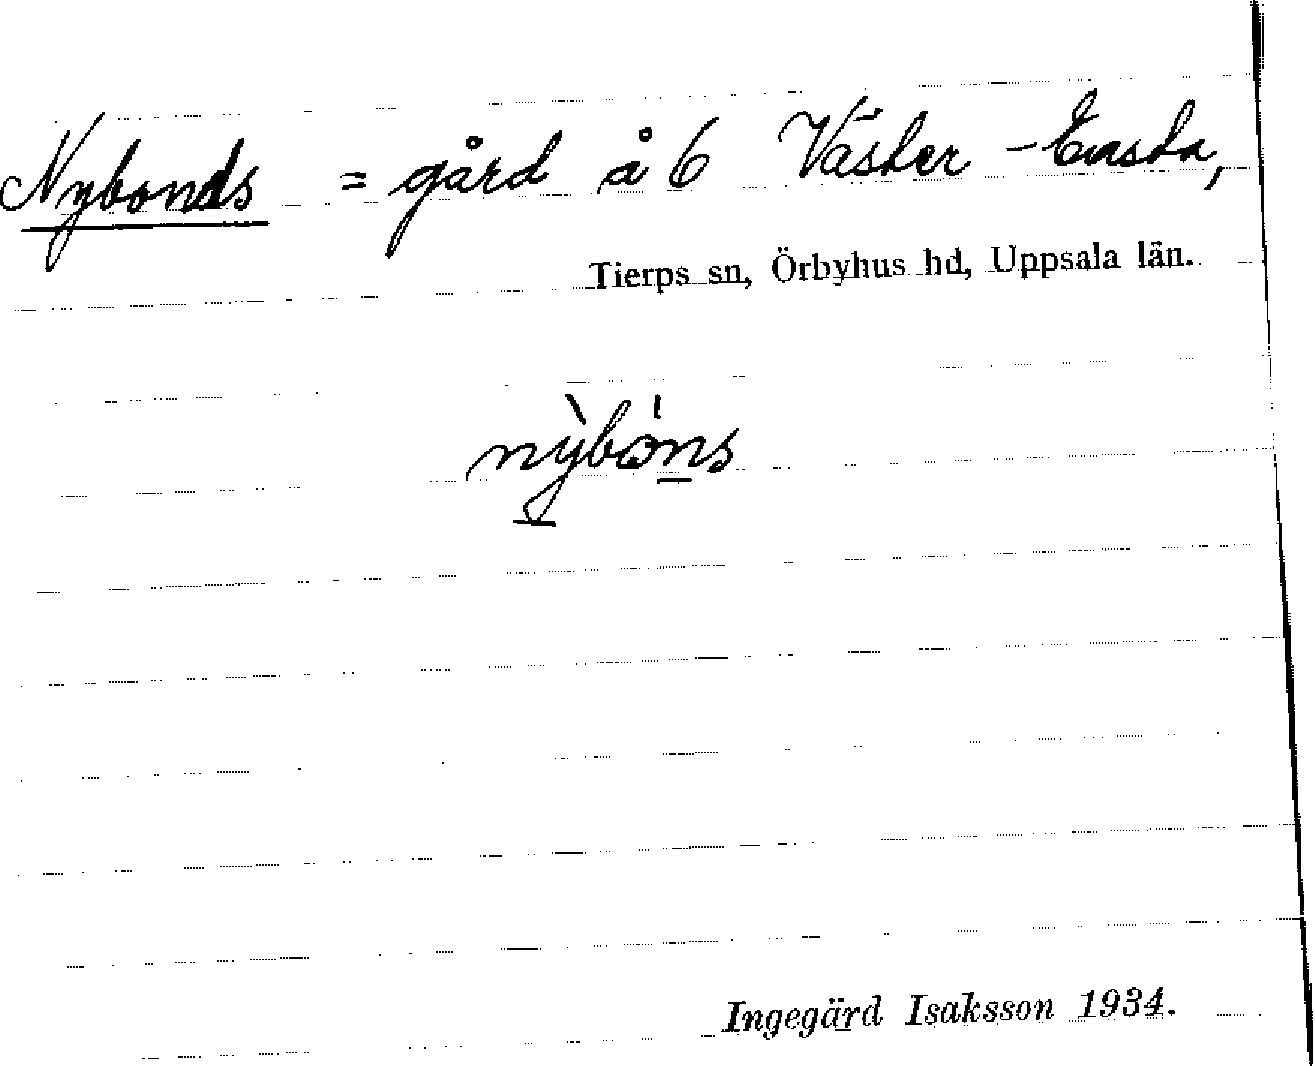 Nybonds = gård å 6 Väster-Ensta,
Tierps sn, Örbyhus hd, Uppsala län.
nỳbóns
Ingegärd Isaksson 1934.